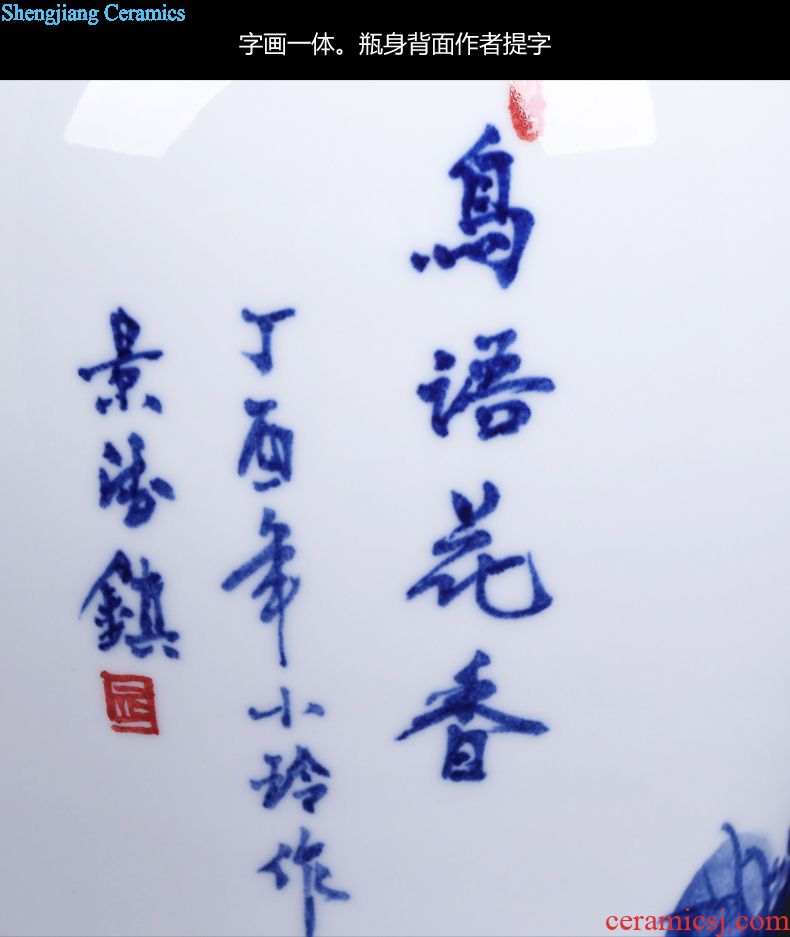 Shengjiang Ceramics
字画一体。瓶身背面作者提字
鳥語花香
丁酉年小玲作
景德鎮
ceramicsj.com